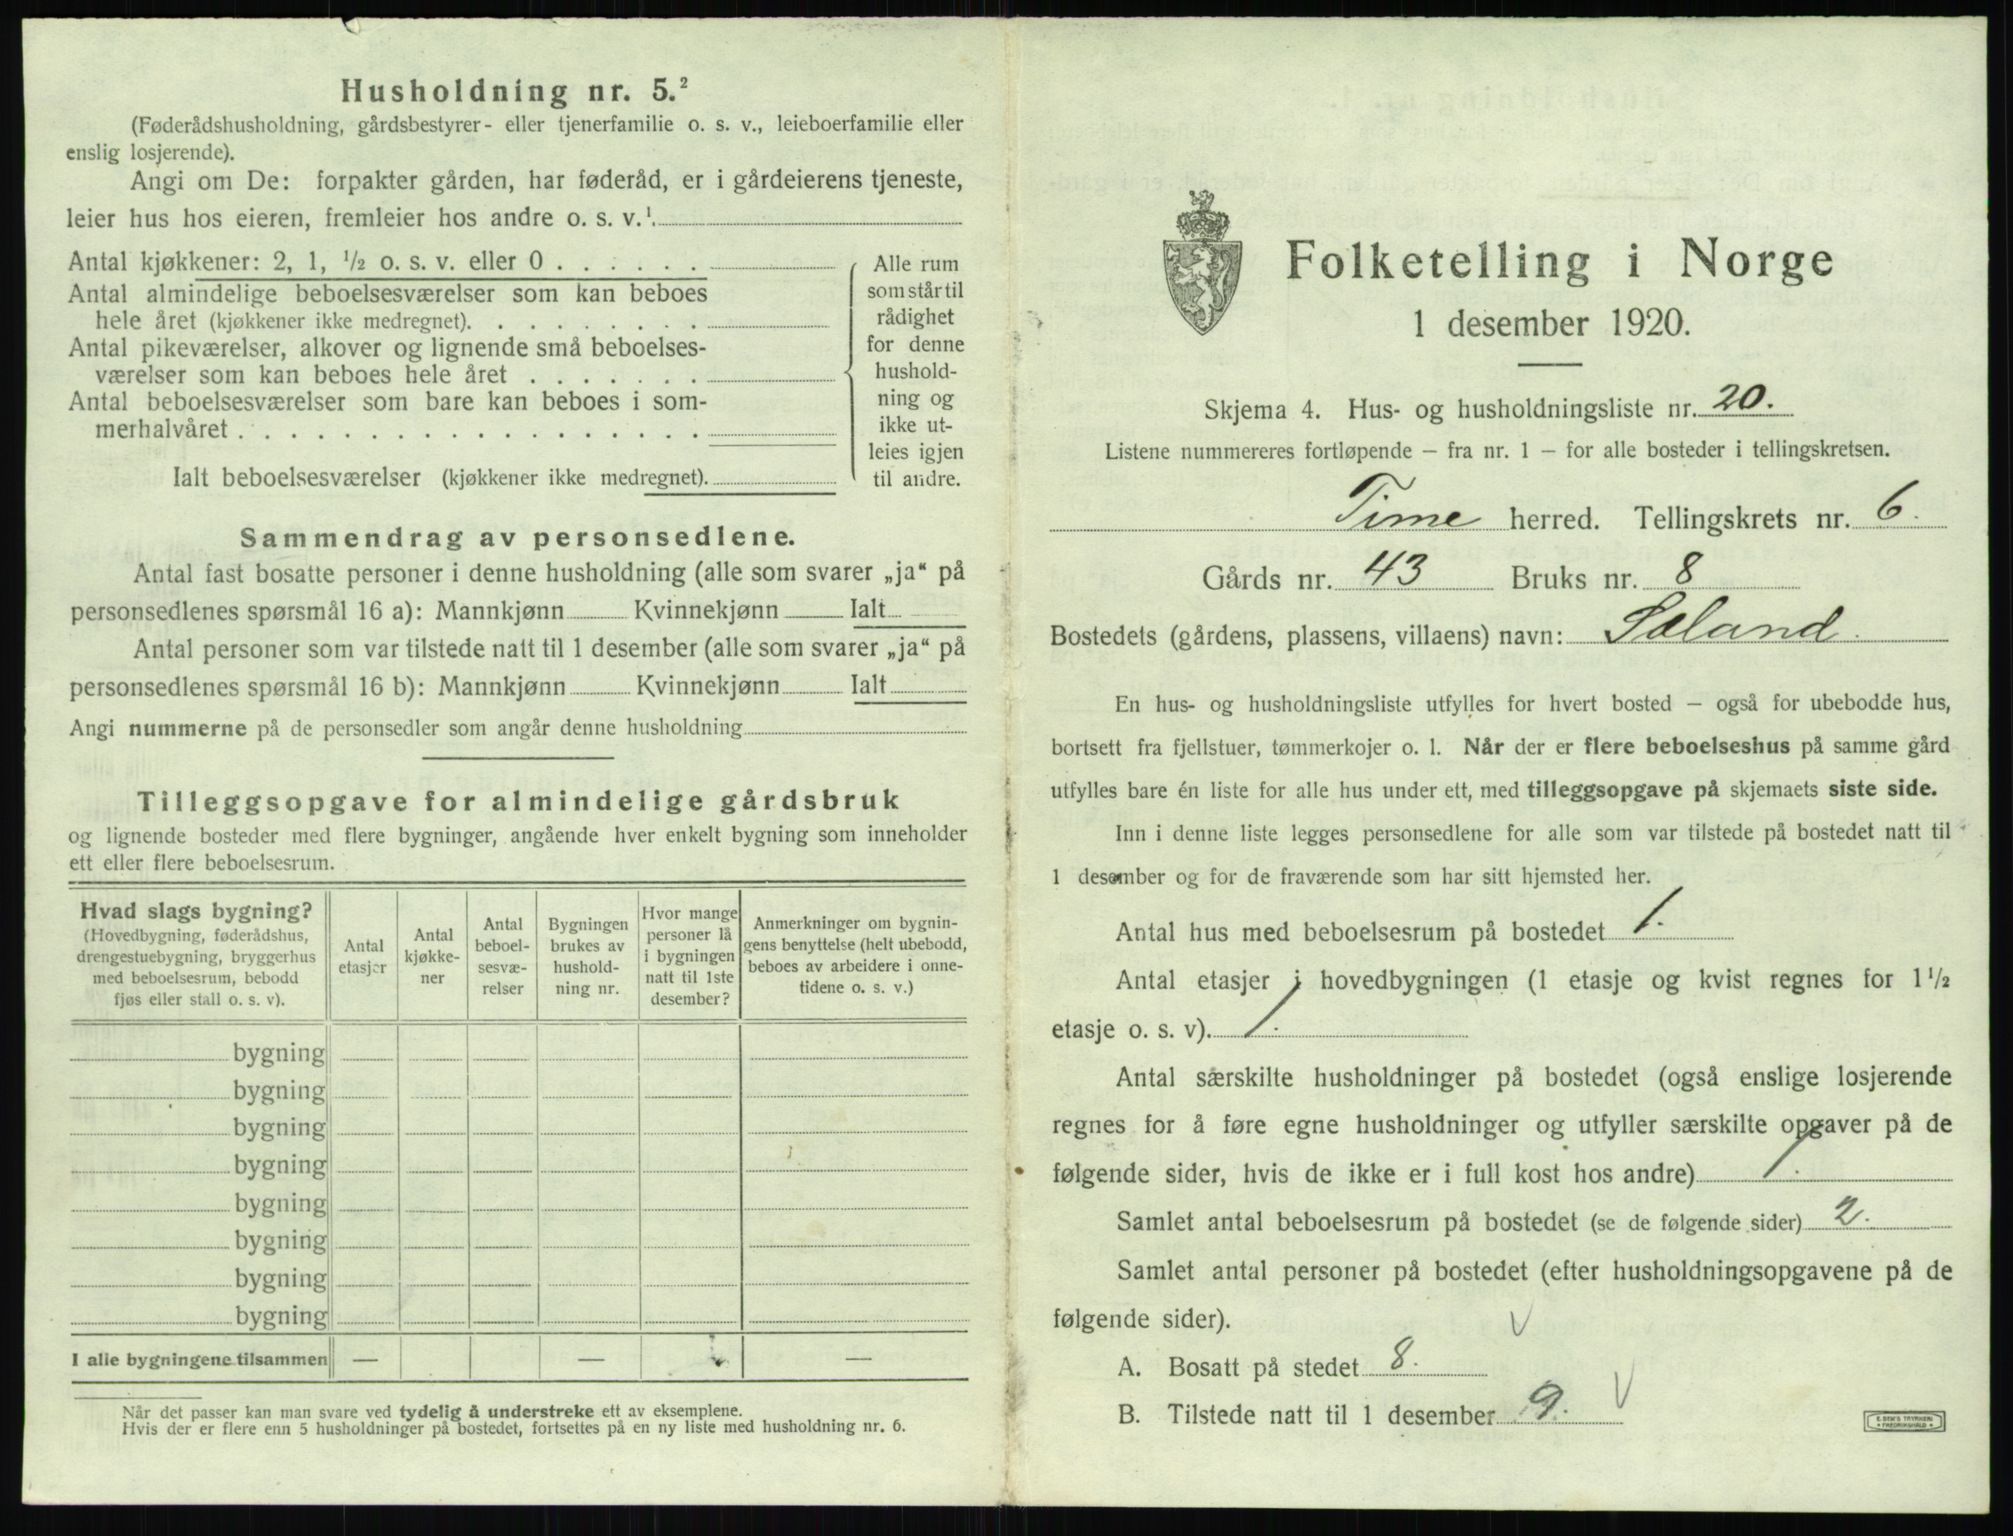 Husholdning nr. 5.²
(Føderådshusholdning, gårdsbestyrer- eller tjenerfamilie o. s. v., leieboerfamilie eller
enslig losjerende).
Angi om De: forpakter gården, har føderåd, er i gårdeierens tjeneste,
leier hus hos eieren, fremleier hos andre o. s. v.¹
Antal kjøkkener: 2, 1, ½ o. s. v. eller 0 . . . . . .
Antal almindelige beboelsesværelser som kan beboes
hele året (kjøkkener ikke medregnet). . . . . . . . .
Antal pikeværelser, alkover og lignende små beboelses-
værelser som kan beboes hele året . . . . . . .
Antal beboelsesværelser som bare kan beboes i som-
merhalvåret . . . . . . . . . . . . . . . . . .
Ialt beboelsesværelser (kjøkkener ikke medregnet).
Alle rum
som står til
rådighet
for denne
hushold-
ning og
ikke ut-
leies igjen
til andre.
Sammendrag av personsedlene.
Antal fast bosatte personer i denne husholdning (alle som svarer „ja“ på
personsedlenes spørsmål 16 a): Mannkjønn Kvinnekjønn Ialt
Antal personer som var tilstede natt til 1 desember (alle som svarer „ja“ på
personsedlenes spørsmål 16 b): Mannkjønn Kvinnekjønn Ialt
Angi nummerne på de personsedler som angår denne husholdning
Tilleggsopgave for almindelige gårdsbruk
og lignende bosteder med flere bygninger, angående hver enkelt bygning som inneholder
ett eller flere beboelsesrum.
Hvad slags bygning?
(Hovedbygning, føderådshus,
drengestuebygning, bryggerhus
med beboelsesrum, bebodd
fjøs eller stall o. s. v).
Antal
etasjer
Antal
kjøkke-
ner
Antal
beboel-
sesvæ-
relser
Bygningen
brukes av
hushold-
ning nr.
Hvor mange
personer lå
i bygningen
natt til 1ste
desember?
Anmerkninger om bygnin-
gens benyttelse (helt ubebodd,
beboes av arbeidere i onne-
tidene o. s. v.)
bygning
bygning
bygning
bygning
bygning
bygning
bygning
bygning
I alle bygningene tilsammen — — —
Når det passer kan man svare ved tydelig å understreke ett av eksemplene.
Hvis der er flere enn 5 husholdninger på bostedet, fortsettes på en ny liste med husholdning nr. 6.
Folketelling i Norge
1 desember 1920.
Skjema 4. Hus- og husholdningsliste nr. 20.
Listene nummereres fortløpende – fra nr. 1 – for alle bosteder i tellingskretsen.
Time herred. Tellingskrets nr. 6.
Gårds nr. 43 Bruks nr. 8
Bostedets (gårdens, plassens, villaens) navn: Sæland.
En hus- og husholdningsliste utfylles for hvert bosted – også for ubebodde hus,
bortsett fra fjellstuer, tømmerkojer o. l. Når der er flere beboelseshus på samme gård
utfylles bare én liste for alle hus under ett, med tilleggsopgave på skjemaets siste side.
Inn i denne liste legges personsedlene for alle som var tilstede på bostedet natt til
1 desember og for de fraværende som har sitt hjemsted her.
Antal hus med beboelsesrum på bostedet 1.
Antal etasjer i hovedbygningen (1 etasje og kvist regnes for 1½
etasje o. s. v). 1.
Antal særskilte husholdninger på bostedet (også enslige losjerende
regnes for å føre egne husholdninger og utfyller særskilte opgaver på de
følgende sider, hvis de ikke er i full kost hos andre) 1.
Samlet antal beboelsesrum på bostedet (se de følgende sider) 2.
Samlet antal personer på bostedet (efter husholdningsopgavene på de
følgende sider).
A. Bosatt på stedet 8.
B. Tilstede natt til 1 desember 9.